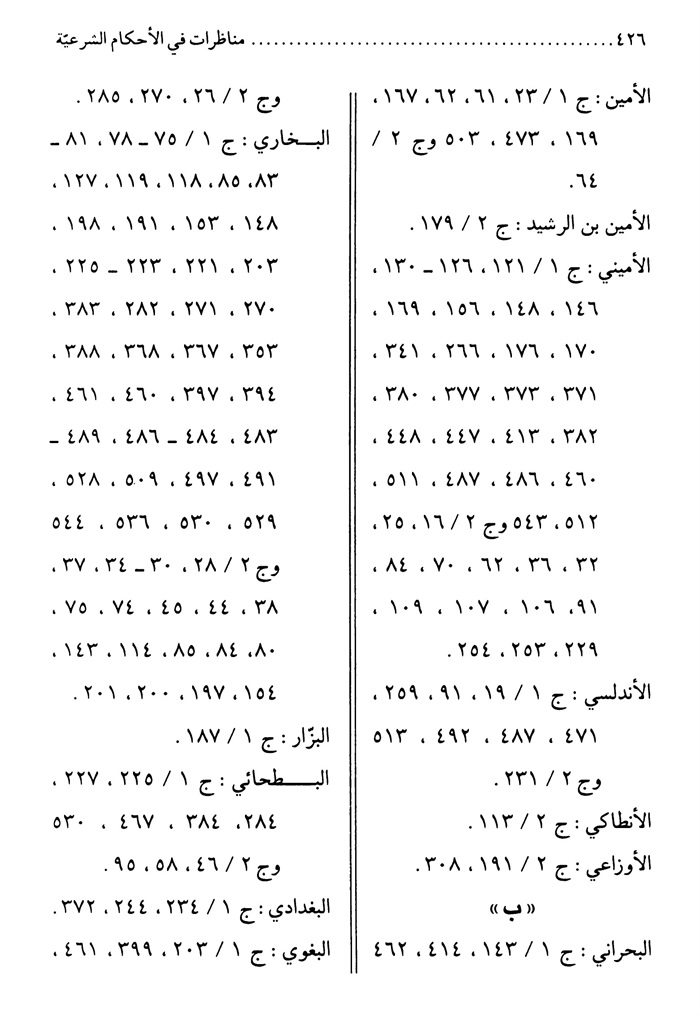 ٤٢٦ ................................................ مناظرات في الأحكام الشرعيّة
الأمين : ج ١ / ٢٣ ، ٦١ ، ٦٢ ، ١٦٧ ،
١٦٩ ، ٤٧٣ ، ٥٠٣ وج ٢ /
٦٤.
الأمين بن الرشيد : ج ٢ / ١٧٩ .
الأميني : ج ١ / ١٢١ ، ١٢٦ ــ ١٣٠ ،
١٤٦ ، ١٤٨ ، ١٥٦ ، ١٦٩ ،
١٧٠ ، ١٧٦ ، ٢٦٦ ، ٣٤١ ،
٣٧١ ، ٣٧٣ ، ٣٧٧ ، ٣٨٠ ،
٣٨٢ ، ٤١٣ ، ٤٤٧ ، ٤٤٨ ،
٤٦٠ ، ٤٨٦ ، ٤٨٧ ، ٥١١ ،
٥١٢ ، ٥٤٣ وج ٢ / ١٦ ، ٢٥ ،
٣٢ ، ٣٦ ، ٦٢ ، ٧٠ ، ٨٤ ،
٩١ ، ١٠٦ ، ١٠٧ ، ١٠٩ ،
٢٢٩ ، ٢٥٣ ، ٢٥٤ .
الأندلسي : ج ١ / ١٩ ، ٩١ ، ٢٥٩ ،
٤٧١ ، ٤٨٧ ، ٤٩٢ ، ٥١٣
وج ٢ / ٢٣١ .
الأنطاكي : ج ٢ / ١١٣ .
الأوزاعي : ج ٢ / ١٩١ ، ٣٠٨ .
«ب»
البحراني : ج ١ / ١٤٣ ، ٤١٤ ، ٤٦٢
وج ٢ / ٢٦ ، ٢٧٠ ، ٢٨٥ .
البـخاري : ج ١ / ٧٥ ــ ٧٨ ، ٨١ ــ
٨٣ ، ٨٥ ، ١١٨ ، ١١٩ ، ١٢٧ ،
١٤٨ ، ١٥٣ ، ١٩١ ، ١٩٨ ،
٢٠٣ ، ٢٢١ ، ٢٢٣ ــ ٢٢٥ ،
٢٧٠ ، ٢٧١ ، ٢٨٢ ، ٣٨٣ ،
٣٥٣ ، ٣٦٧ ، ٣٦٨ ، ٣٨٨ ،
٣٩٤ ، ٣٩٧ ، ٤٦٠ ، ٤٦١ ،
٤٨٣ ، ٤٨٤ ــ ٤٨٦ ، ٤٨٩ ــ
٤٩١ ، ٤٩٧ ، ٥٠٩ ، ٥٢٨ ،
٥٢٩ ، ٥٣٠ ، ٥٣٦ ، ٥٤٤
وج ٢ / ٢٨ ، ٣٠ ــ ٣٤ ، ٣٧ ،
٣٨ ، ٤٤ ، ٤٥ ، ٧٤ ، ٧٥ ،
٨٠ ، ٨٤ ، ٨٥ ، ١١٤ ، ١٤٣ ،
١٥٤ ، ١٩٧ ، ٢٠٠ ، ٢٠١ .
البزّار : ج ١ / ١٨٧ .
البـــطحائي : ج ١ / ٢٢٥ ، ٢٢٧ ،
٢٨٤ ، ٣٨٤ ، ٤٦٧ ، ٥٣٠
وج ٢ / ٤٦ ، ٥٨ ، ٩٥ .
البغدادي : ج ١ / ٢٣٤ ، ٢٤٤ ، ٣٧٢ .
البغوي : ج ١ / ٢٠٣ ، ٣٩٩ ، ٤٦١ ،